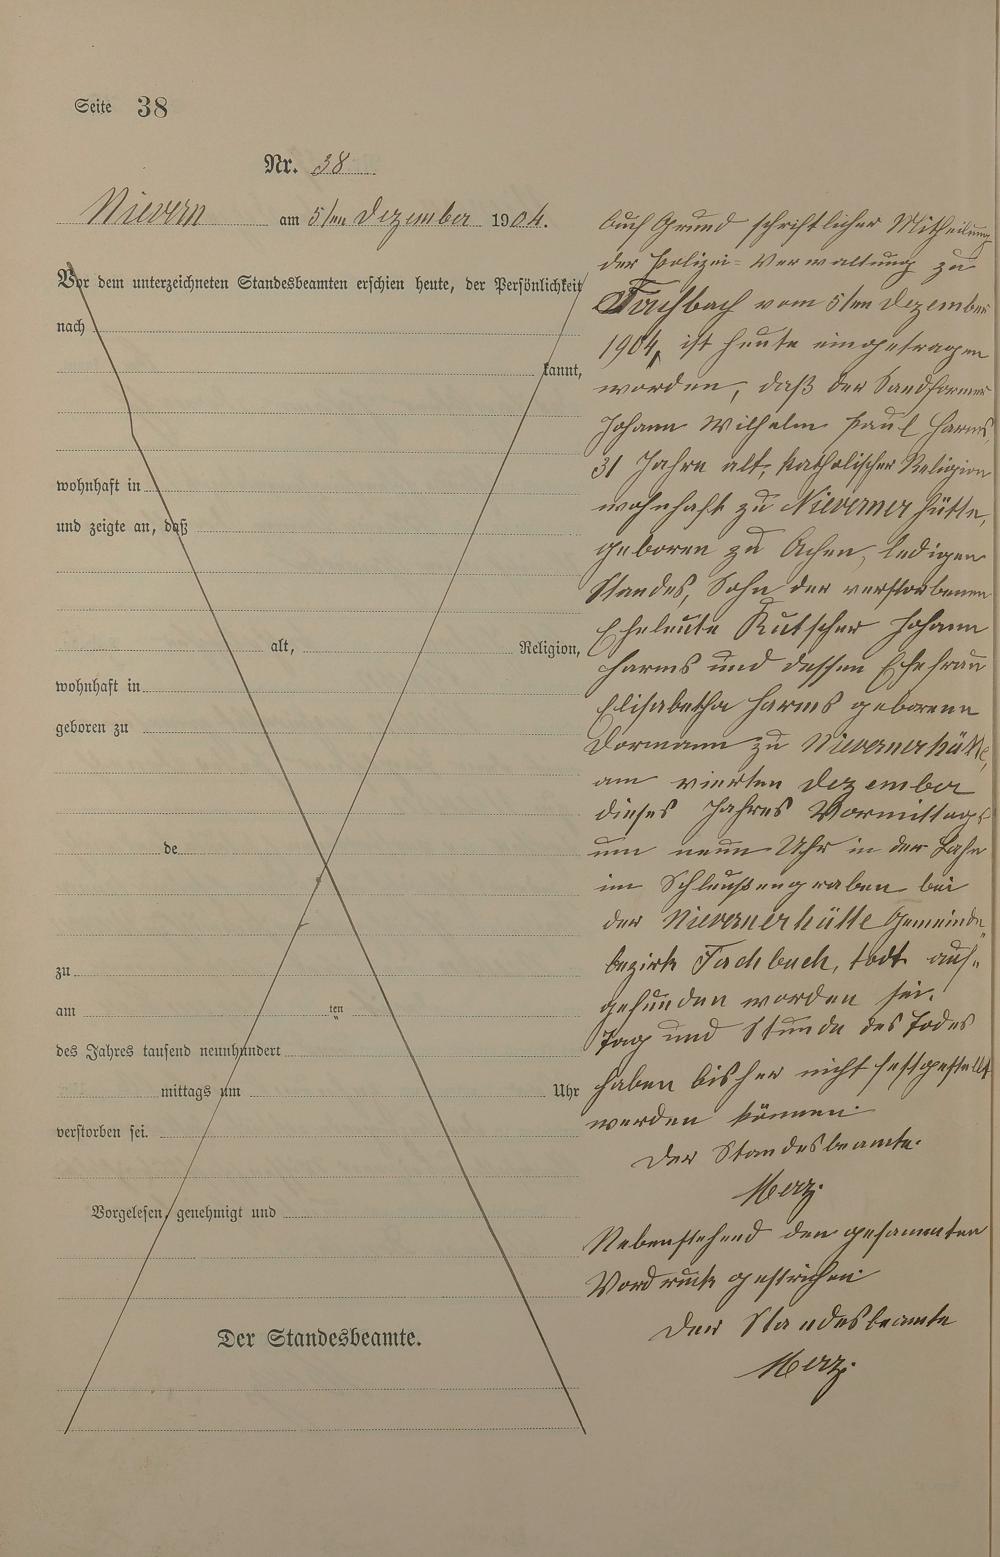 Seite 38
Nr. 38
Nievern am 5ten Dezember 1904.
Vor dem unterzeichneten Standesbeamten erschien heute, der Persönlichkeit
nach
kannt,
wohnhaft in
und zeigte an, daß
alt, Religion,
wohnhaft in
geboren zu
de
zu
am ten
des Jahres tausend neunhundert
mittags um Uhr
verstorben sei.
Vorgelesen, genehmigt und
Der Standesbeamte.
Auf Grund schriftlicher Mitheilung
der Polizei-Verwaltung zu
Fachbach vom 5ten Dezember
1904, ist heute eingetragen
worden, daß der Sandformer
Johann Wilhelm Paul Harms,
31 Jahre alt, katholischer Religion
wohnhaft zu Nieverner Hütte,
geboren zu Achen, ledigen
Standes, Sohn der verstorbenen
Eheleute Kutscher Johann
Harms und dessen Ehefrau
Elisabetha Harms geborene
Dormann zu Nievernerhütte,
am vierten Dezember
dieses Jahres Vormittags
um neun Uhr in der Lahn
im Schleußengraben bei
der Nievernerhütte Gemeinde-
bezirk Fachbach, todt auf-
gefunden worden sei.
Tag und Stunde des Todes
haben bisher nicht festgestellt
werden können.
Der Standesbeamte.
Merz.
Nebenstehend den gesammten
Vordruck gestrichen
Der Standesbeamte
Merz.